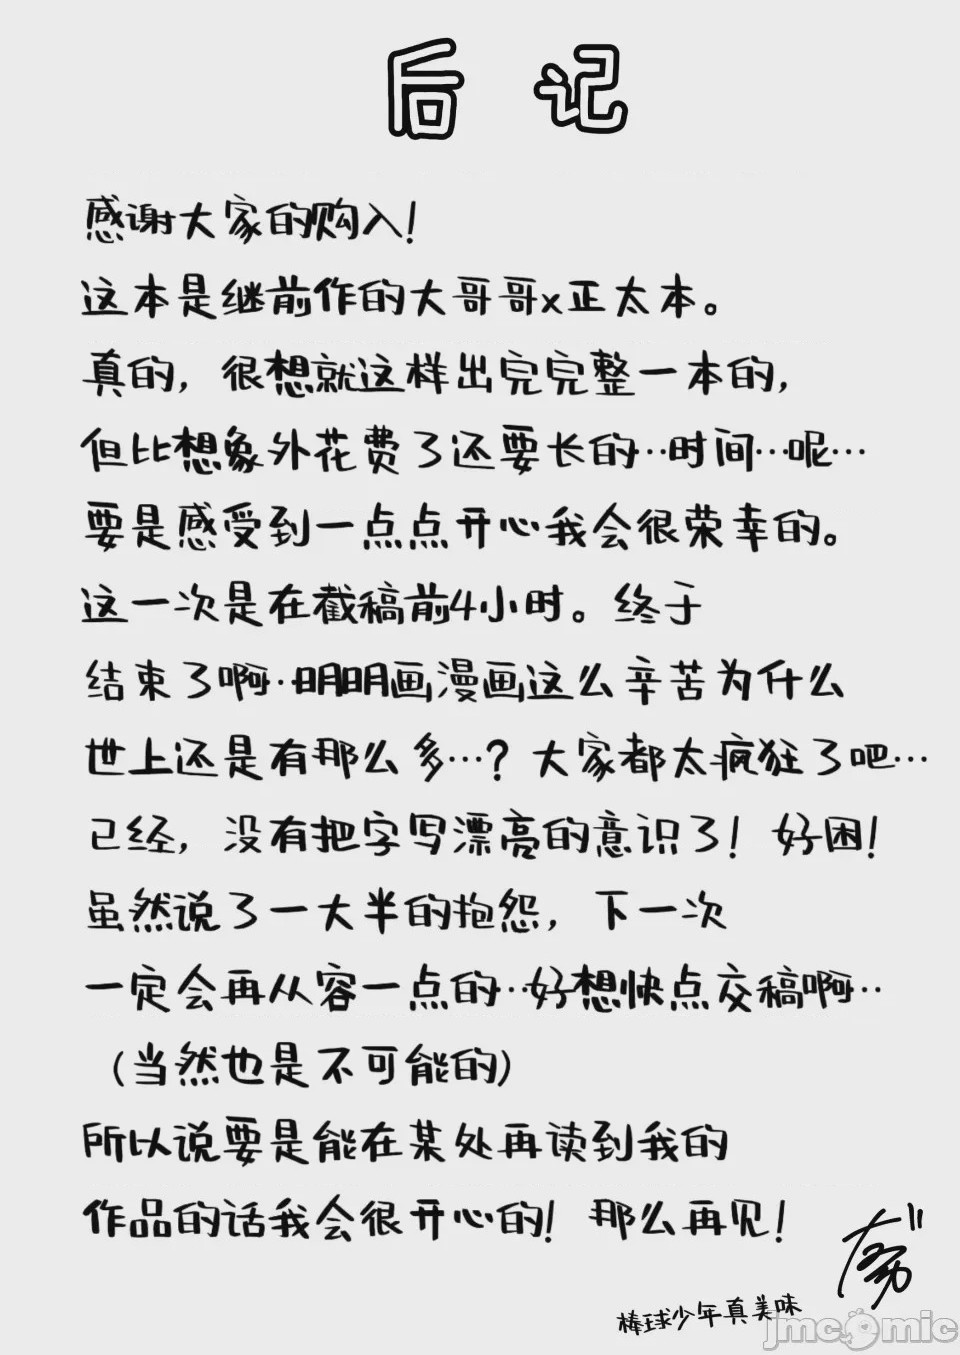 后记
感谢大家的购入!
这本是继前作的大哥哥x正太本。
真的, 很想就这样出完完整一本的,
但比想象外花费了还要长的…时间…呢…
要是感受到一点点开心我会很荣幸的。
这一次是在截稿前4小时。终于
结束了啊…明明画漫画这么辛苦为什么
世上还是有那么多…? 大家都太疯狂了吧…
已经, 没有把字写漂亮的意识了! 好困!
虽然说了一大半的抱怨, 下一次
一定会再从容一点的…好想快点交稿啊…
(当然也是不可能的)
所以说要是能在某处再读到我的
作品的话我会很开心的! 那么再见!
棒球少年真美味
jmcomic